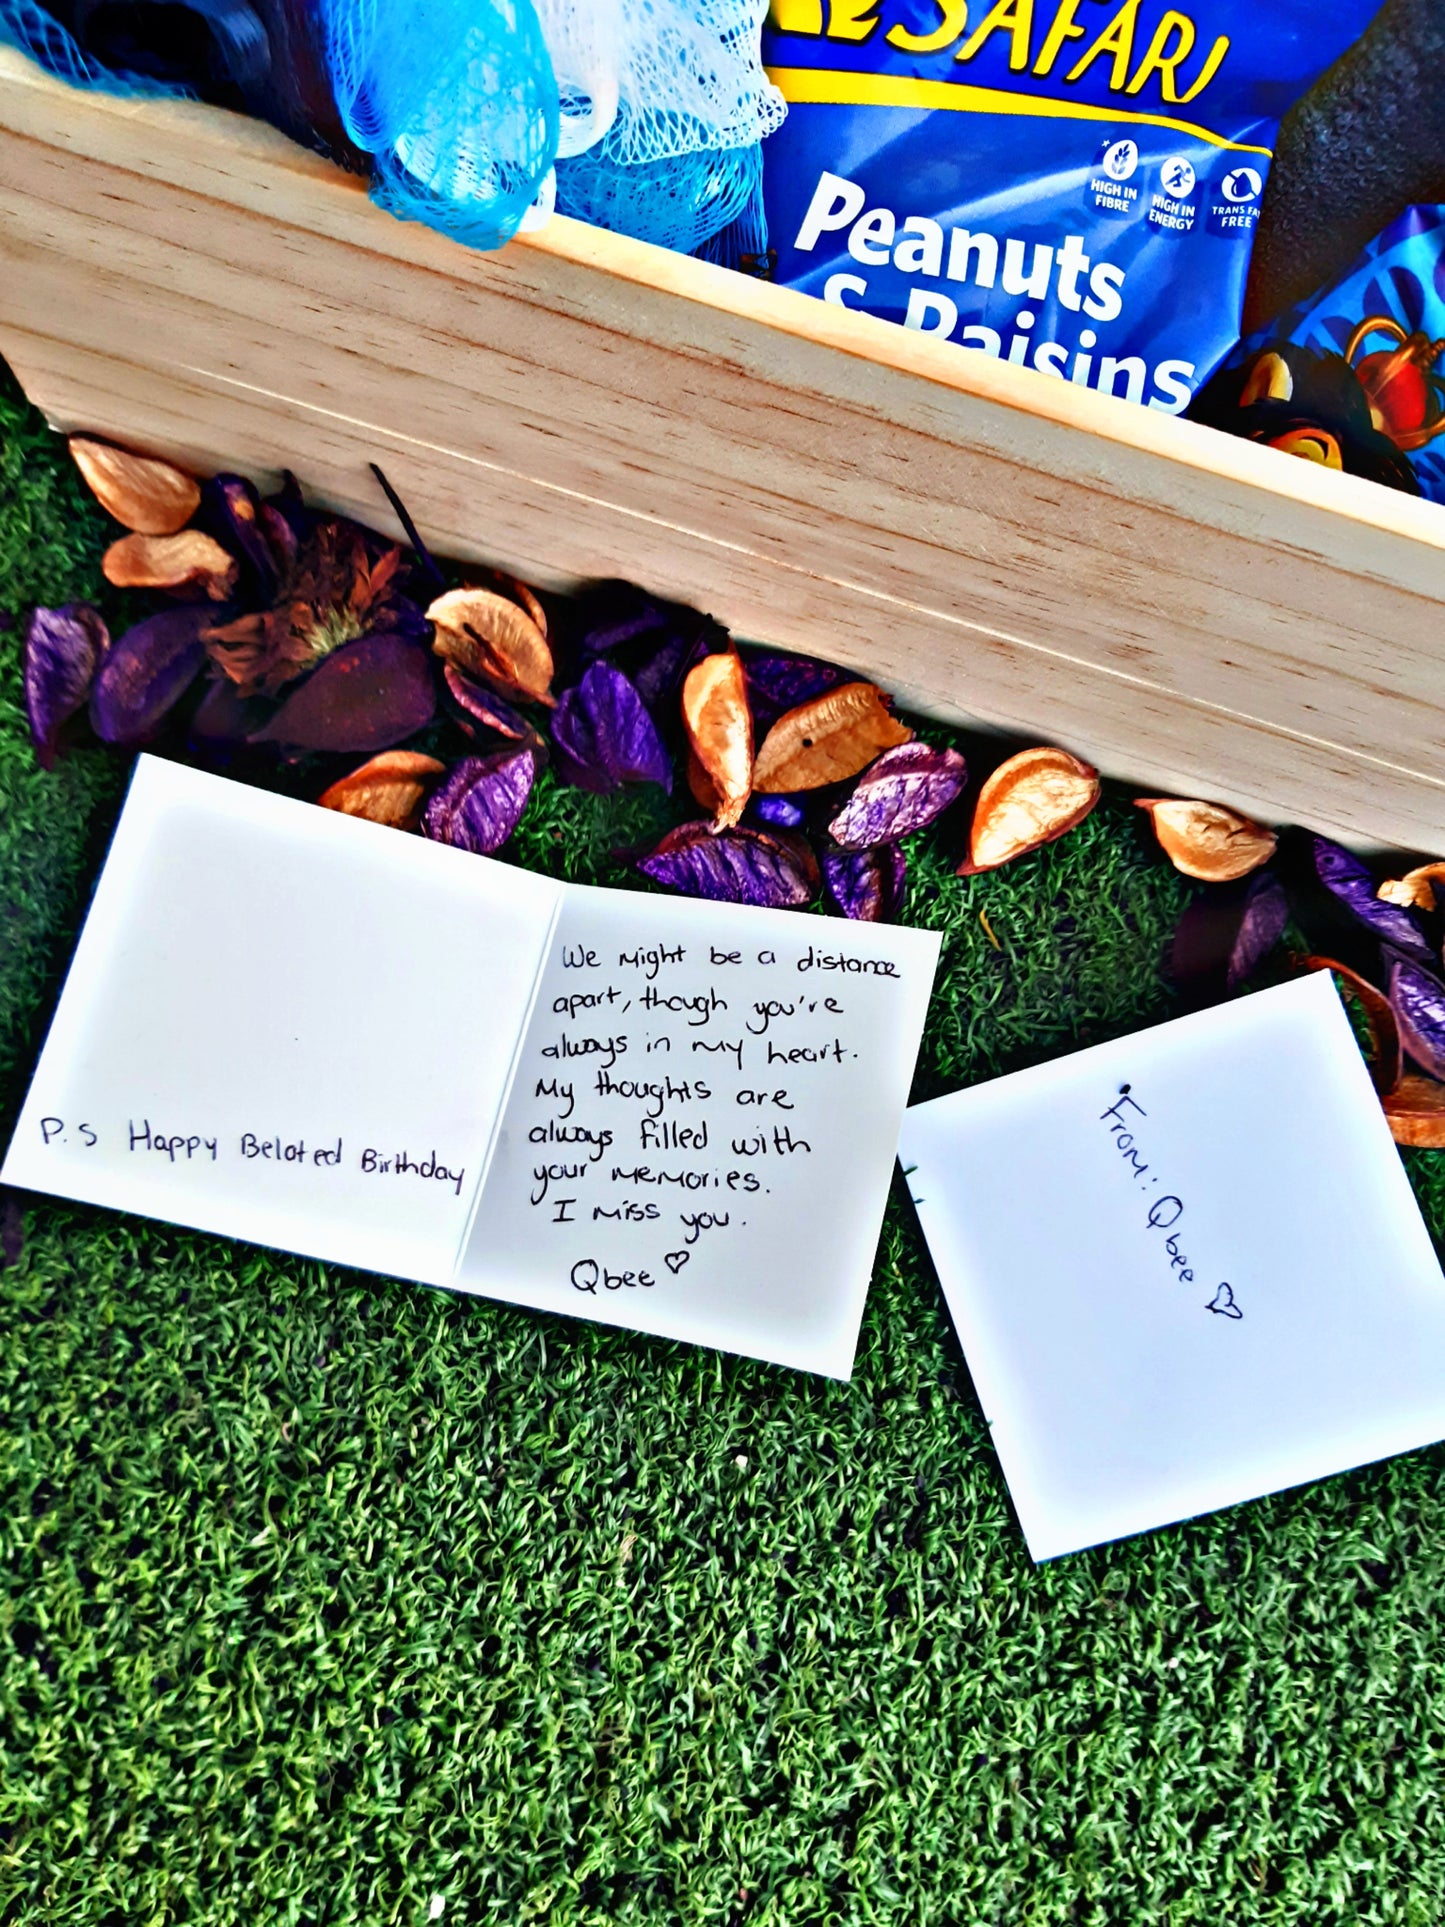 SAFARI
HIGH IN
FIBRE
HIGH IN
ENERGY
TRANS FAT
FREE
Peanuts
& Raisins
P.S Happy Belated Birthday
We might be a distance
apart, though you're
always in my heart.
My thoughts are
always filled with
your memories.
I miss you.
Qbee
From: Qbee